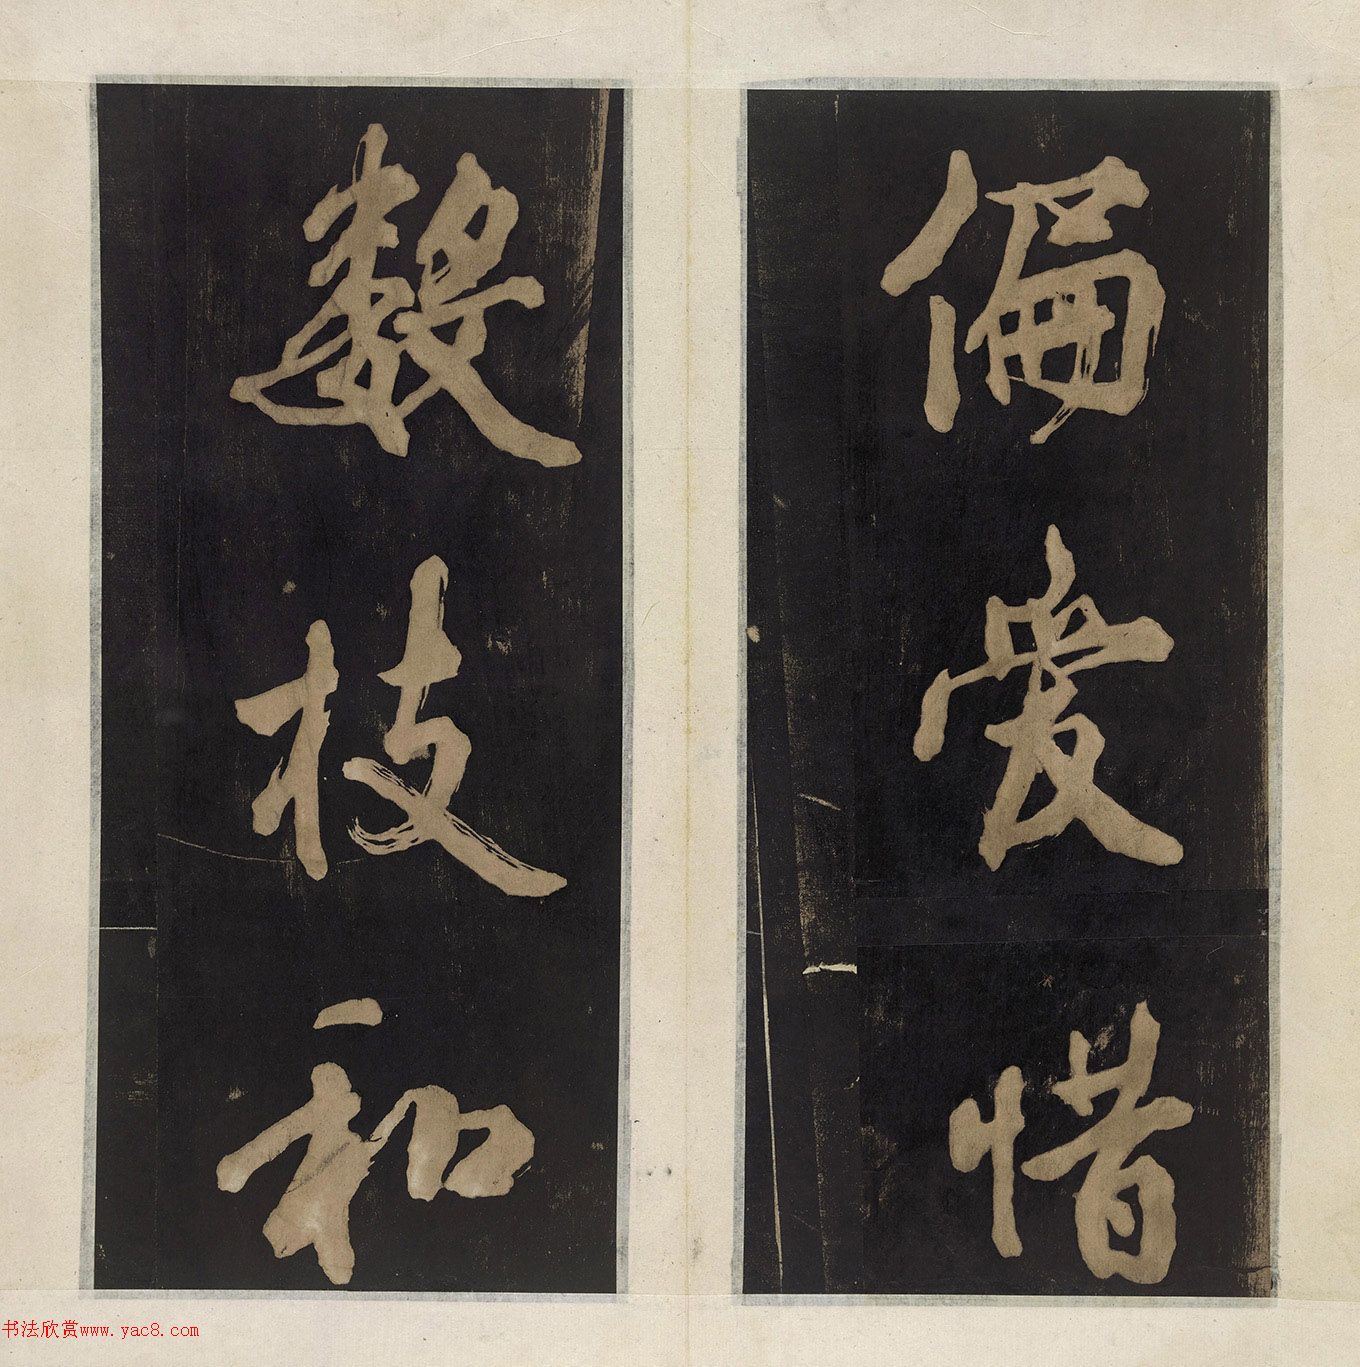 偏愛惜
數枝和
书法欣赏www.yac8.com